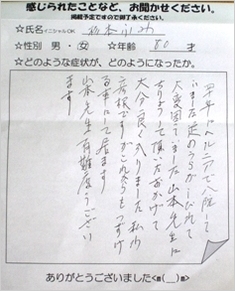 感じられたことなど、お聞かせください。
掲載予定ですので御了承ください。
☆氏名 イニシャルOK
☆性別 男・女 ☆年齢 80才
☆どのような症状が、どのようになったか。
四年前にヘルニアで入院して
いました 足のうらがしびれて
大変困っていました 山本先生に
さすって頂いたおかげで
大分良くなりました 私の
ですがこれからもつづけ
る事にして居ます
山本先生有難度うござい
ます
ありがとうございました<m(__)m>